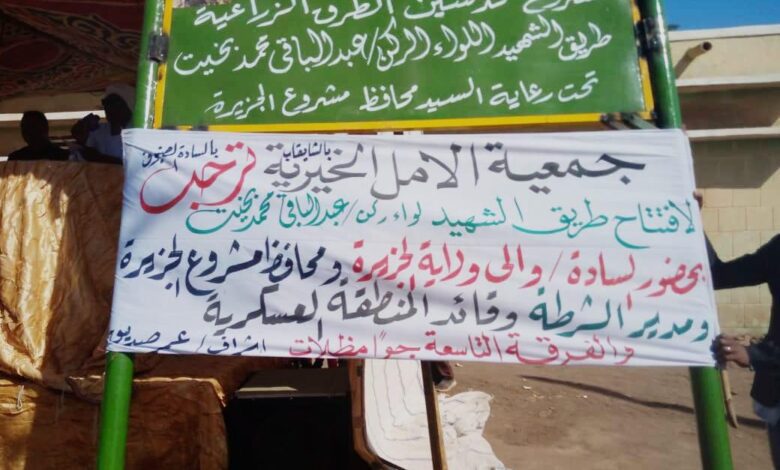 مشروع تدشين الطرق الزراعية
طريق الشهيد اللواء الركن/عبدالباقى محمد بخيت
تحت رعاية السيد محافظ مشروع الجزيرة
جمعية الامل الخيرية بالشايقاب ترحب بالسادة
لافتتاح طريق الشهيد لواء ركن/عبدالباقى محمد بخيت
بحضور لسادة/والى ولاية الجزيرة ومحافظ مشروع الجزيرة
ومدير الشرطة وقائد المنطقة لعسكرية
والفرقة التاسعة جوا مظلات اشراف/عمر صديق